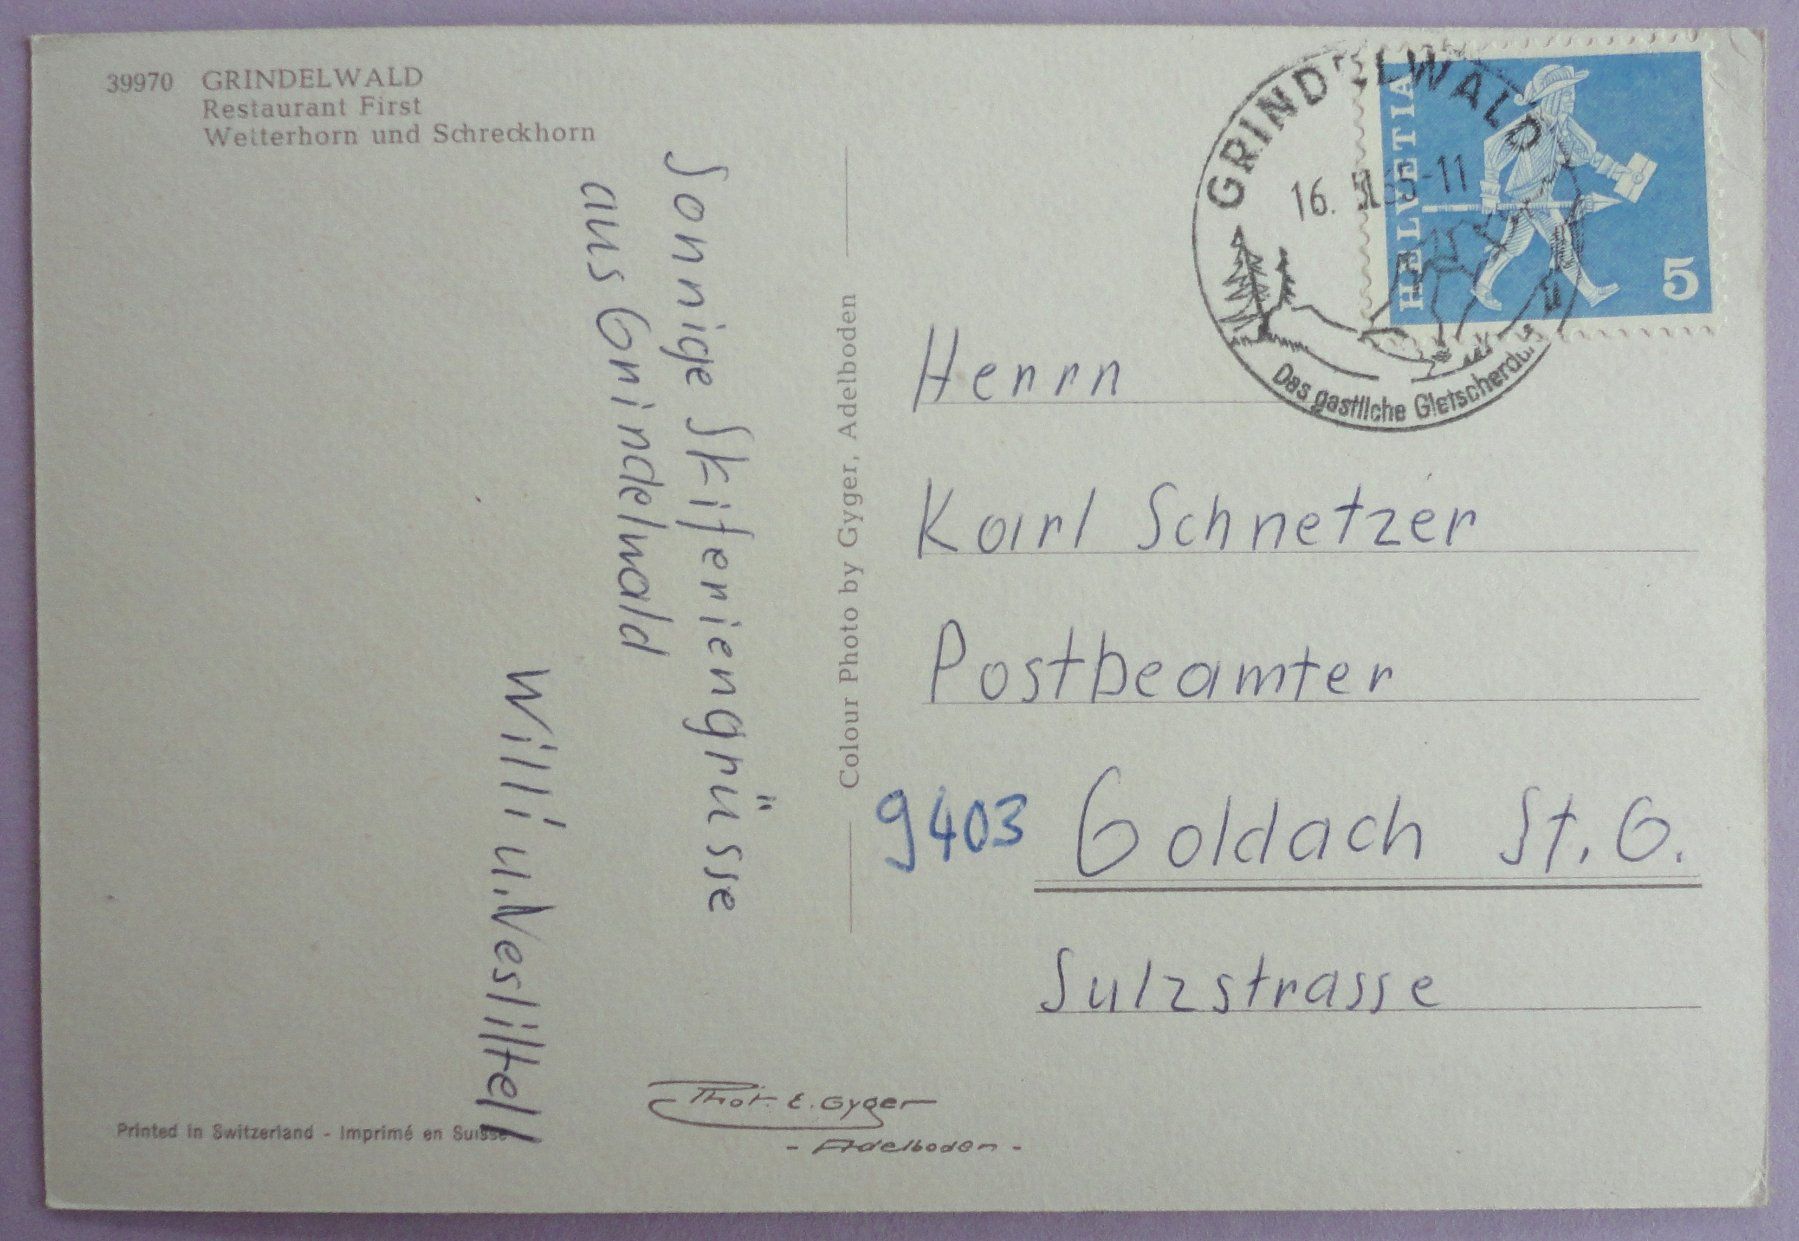 39970 GRINDELWALD
Restaurant First
Wetterhorn und Schreckhorn
Sonnige Skiferiengrüsse
aus Grindelwald
Willi u.
Printed in Switzerland - Imprimé en Suisse
Colour Photo by Gyger, Adelboden
Phot. E. Gyger
- Adelboden -
GRINDELWALD
16. -11
Das gastliche Gletscherdo
HELVETIA
5
Herrn
Karl Schnetzer
Postbeamter
9403 Goldach St. G.
Sulzstrasse